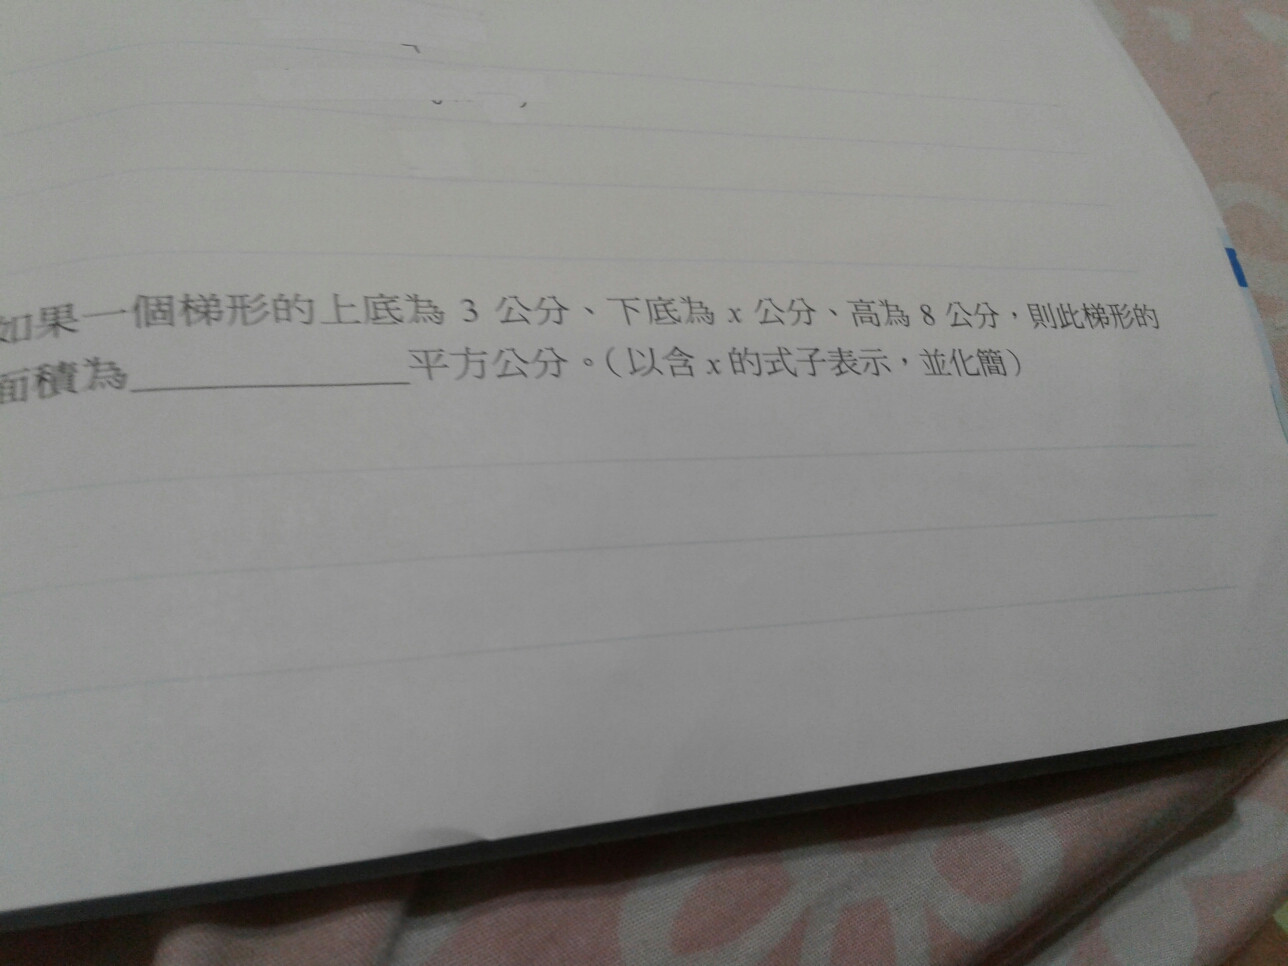 如果一個梯形的上底為 3 公分、下底為 x 公分、高為 8 公分，則此梯形的
面積為____________平方公分。（以含 x 的式子表示，並化簡）